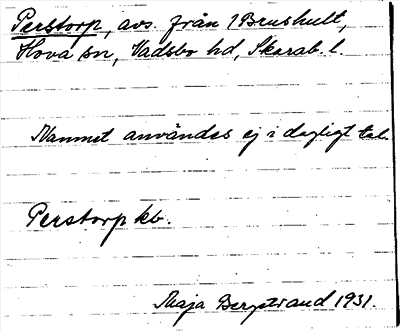 Perstorp, avs. från 1 Brushult,
Hova sn, Vadsbo hd, Skarab. l.
Namnet användes ej i dagligt tal.
Perstorp kb.
Maja Bergstrand 1931.